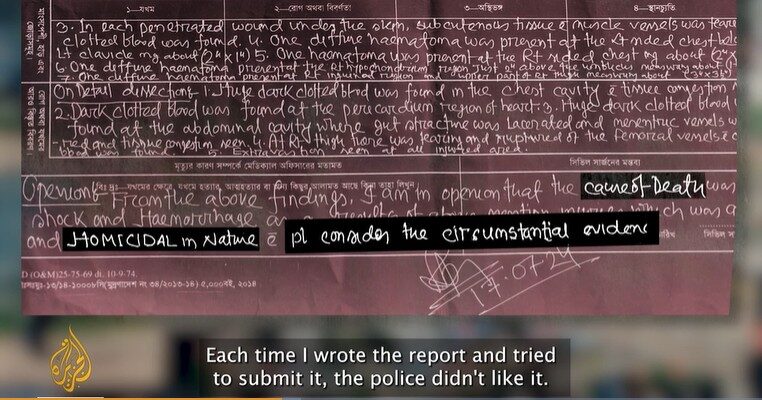 ১—যখম ২—রোগ অথবা বিবর্ণতা ৩—অস্থিভঙ্গ ৪—স্থানচ্যুতি
3. In each penetrated wound under the skin, subcutenous tissue & muscle vessels was teare
clotted blood was found. 4. One diffuse haematoma was present at the Rt sided chest below
Lt clavicle mg about 5. One haematoma was present at the Rt sided chest mg about
6. One diffuse haematoma present at the Rt hypochondrium region just above the umbilicus measuring about
7. One diffuse haematoma present at Rt inguinal region and upper part of Rt thigh measuring about (3"x3½")
On Detail dissection:- 1. Huge dark clotted blood was found in the chest cavity c̄ tissue congestion
2. Dark clotted blood was found at the pericardium region of heart. 3. Huge dark clotted blood
found at the abdominal cavity where gut structure was lacerated and mesentric vessels w
red and tissue congestion seen. 4. At Rt. thigh there was tearing and ruptured of the femoral vessels c̄ c
blood was found. 5. Extravasation seen at all injured area.
মৃত্যুর কারণ সম্পর্কে মেডিক্যাল অফিসারের মতামত সিভিল সার্জনের মন্তব্য
বিঃ দ্রঃ—যখমের ক্ষেত্রে, যখমে হত্যার, আত্মহত্যার বা কিছুর আলামত আছে কিনা তাহা লিখুন
Openion:- From the above findings, I am in openion that the cause of Death was
shock and Haemorrhage as a results of above mention which was a
and HOMICIDAL in Nature c̄ pl consider the circumstantial eviden
সিভিল স
17.07.24
D (O&M)25-75-69 di. 10-9-74.
২০১৪
Each time I wrote the report and tried
to submit it, the police didn't like it.
الجزيرة